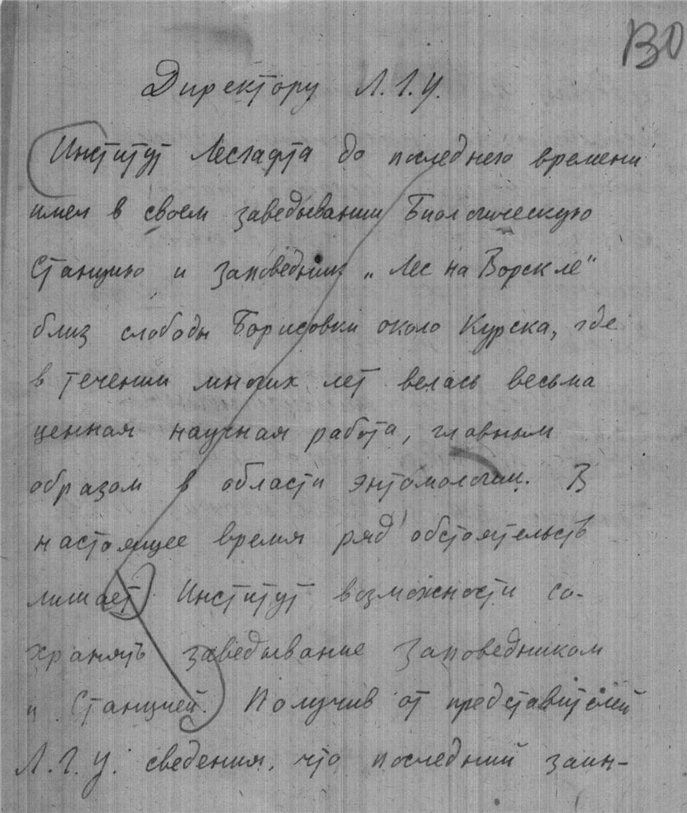 130
Директору Л.Г.У.
Институт Лесгафта до последнего времени
имел в своем заведывании Биологическую
Станцию и Заповедник „Лес на Ворскле“
близ слободы Борисовки около Курска, где
в течении многих лет велась весьма
ценная научная работа, главным
образом в области энтомологии. В
настоящее время ряд обстоятельств
лишает Институт возможности со-
хранять заведывание Заповедником
и Станцией. Получив от представителей
Л.Г.У. сведения, что последний заин-